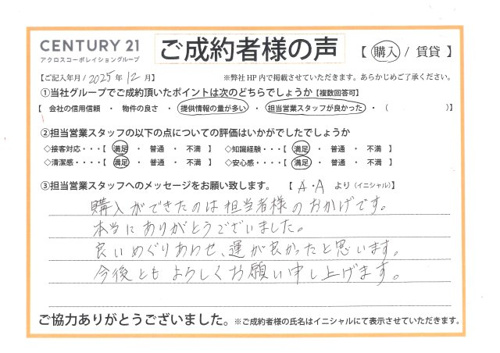 CENTURY 21
アクロスコーポレイショングループ
ご成約者様の声
【 購入 / 賃貸 】
【ご記入年月/ 2025年 12月】
※弊社HP内で掲載させていただきます。あらかじめご了承ください。
①当社グループでご成約頂いたポイントは次のどちらでしょうか【複数回答可】
【 会社の信用信頼 ・ 物件の良さ ・ 提供情報の量が多い ・ 担当営業スタッフが良かった ・( )】
②担当営業スタッフの以下の点についての評価はいかがでしたでしょうか
◇接客対応・・【 満足 ・ 普通 ・ 不満 】 ◇知識経験・・【 満足 ・ 普通 ・ 不満 】
◇清潔感・・・・【 満足 ・ 普通 ・ 不満 】 ◇安心感・・・・【 満足 ・ 普通 ・ 不満 】
③担当営業スタッフへのメッセージをお願い致します。 【 A・A より(イニシャル)】
購入ができたのは担当者様のおかげです。
本当にありがとうございました。
良いめぐりあわせ、運が良かったと思います。
今後ともよろしくお願い申し上げます。
ご協力ありがとうございました。※ご成約者様の氏名はイニシャルにて表示させていただきます。